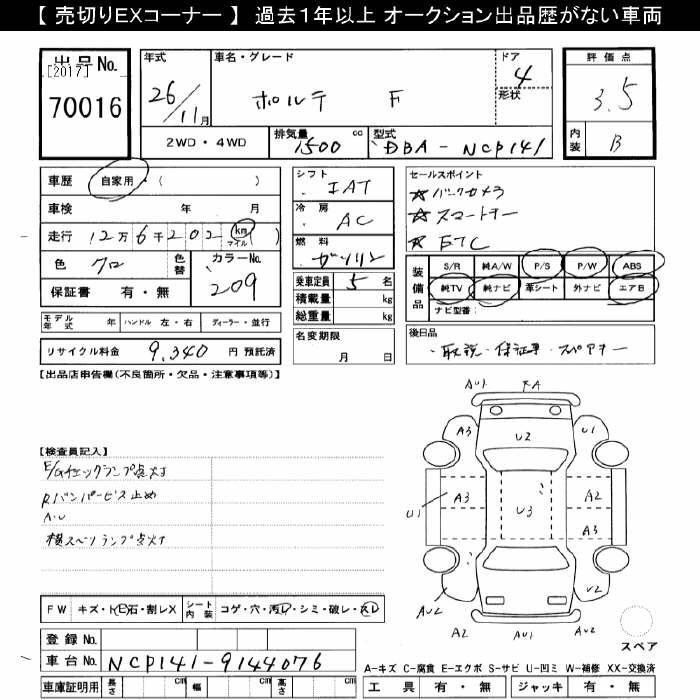 【 売切りEXコーナー 】 過去1年以上 オークション出品歴がない車両
出品No.
[2017]
70016
年式
26/11月
車名・グレード
ポルテ F
ドア
4
形状
評価点
3.5
内装
B
2WD・4WD
排気量
1500 cc
型式
DBA-NCP141
車歴 自家用・( )
車検 年 月
走行 12万6千202 km マイル ( )
色 クロ
色替
カラーNo.
209
保証書 有・無
シフト
IAT
冷房
AC
燃料
ガソリン
乗車定員 5 名
積載量 kg
総重量 kg
セールスポイント
☆バックカメラ
☆スマートキー
☆ETC
装備品
S/R 純A/W P/S P/W ABS
純TV 純ナビ 革シート 外ナビ エアB
ナビ型番:
モデル年式 年 ハンドル 左・右 ディーラー・並行
リサイクル料金 9,340 円 預託済
名変期限
月 日
後日品
・取説・保証書・スペアキー
【出品店申告欄(不良箇所・欠品・注意事項等)】
【検査員記入】
E/Gチェックランプ点灯
Rバンパービス止め
A・U
横スベリランプ点灯
AU1 RA
A3 U2 U1
U1 A3 U3 A2
A3
AU2 U2
A2 AU1 AU2
スペア
FW キズ・ト石・割レX
シート内装 コゲ・穴・汚レ・シミ・破レ・スレ
登録 No.
車台 No. NCP141-9144076
車庫証明用 長さ cm 幅 cm 高さ cm
A-キズ C-腐食 E-エクボ S-サビ U-凹ミ W-補修 XX-交換済
工具 有・無 ジャッキ 有・無